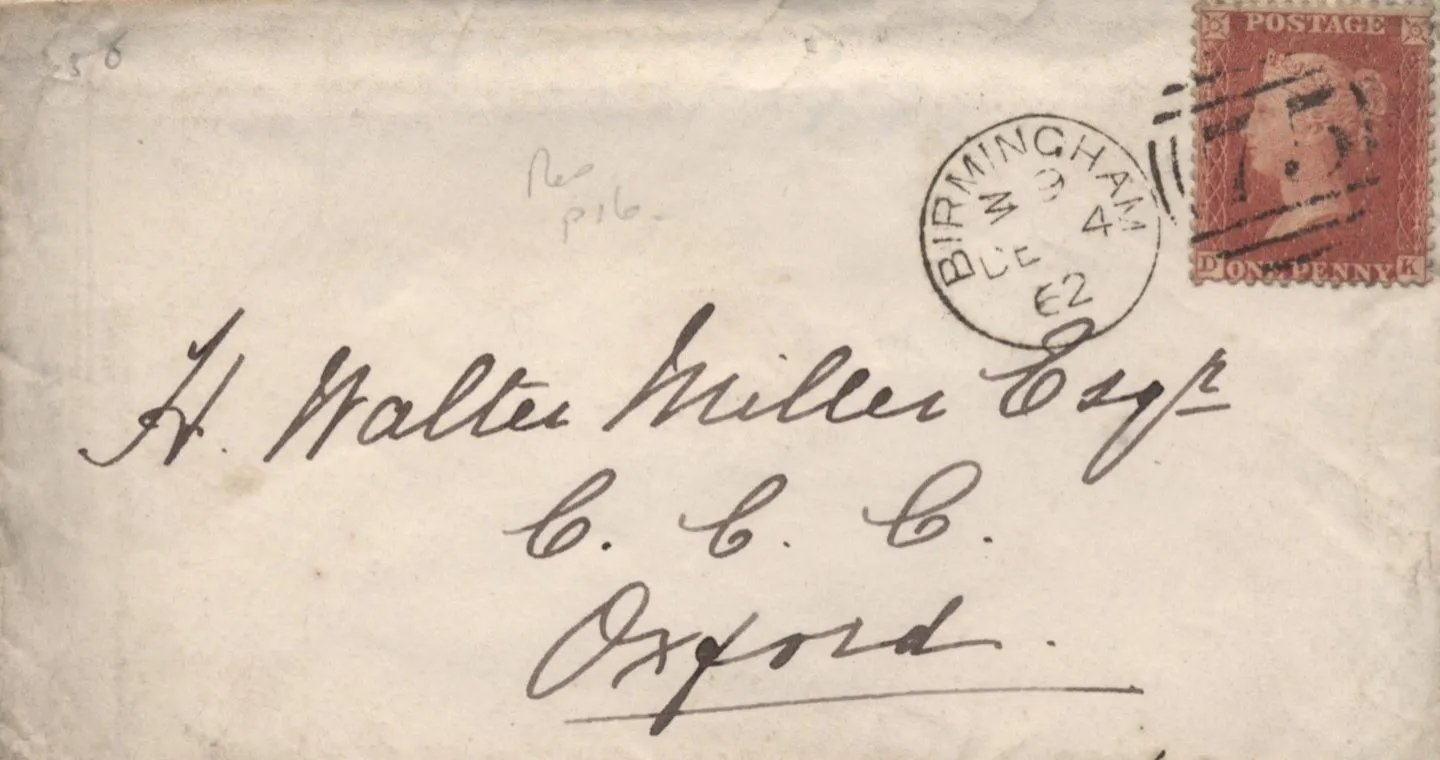 POSTAGE
75
D ONE PENNY K
BIRMINGHAM
W 9
DE 4
62
p16.
H. Walter Miller Esqr
C. C. C.
Oxford.